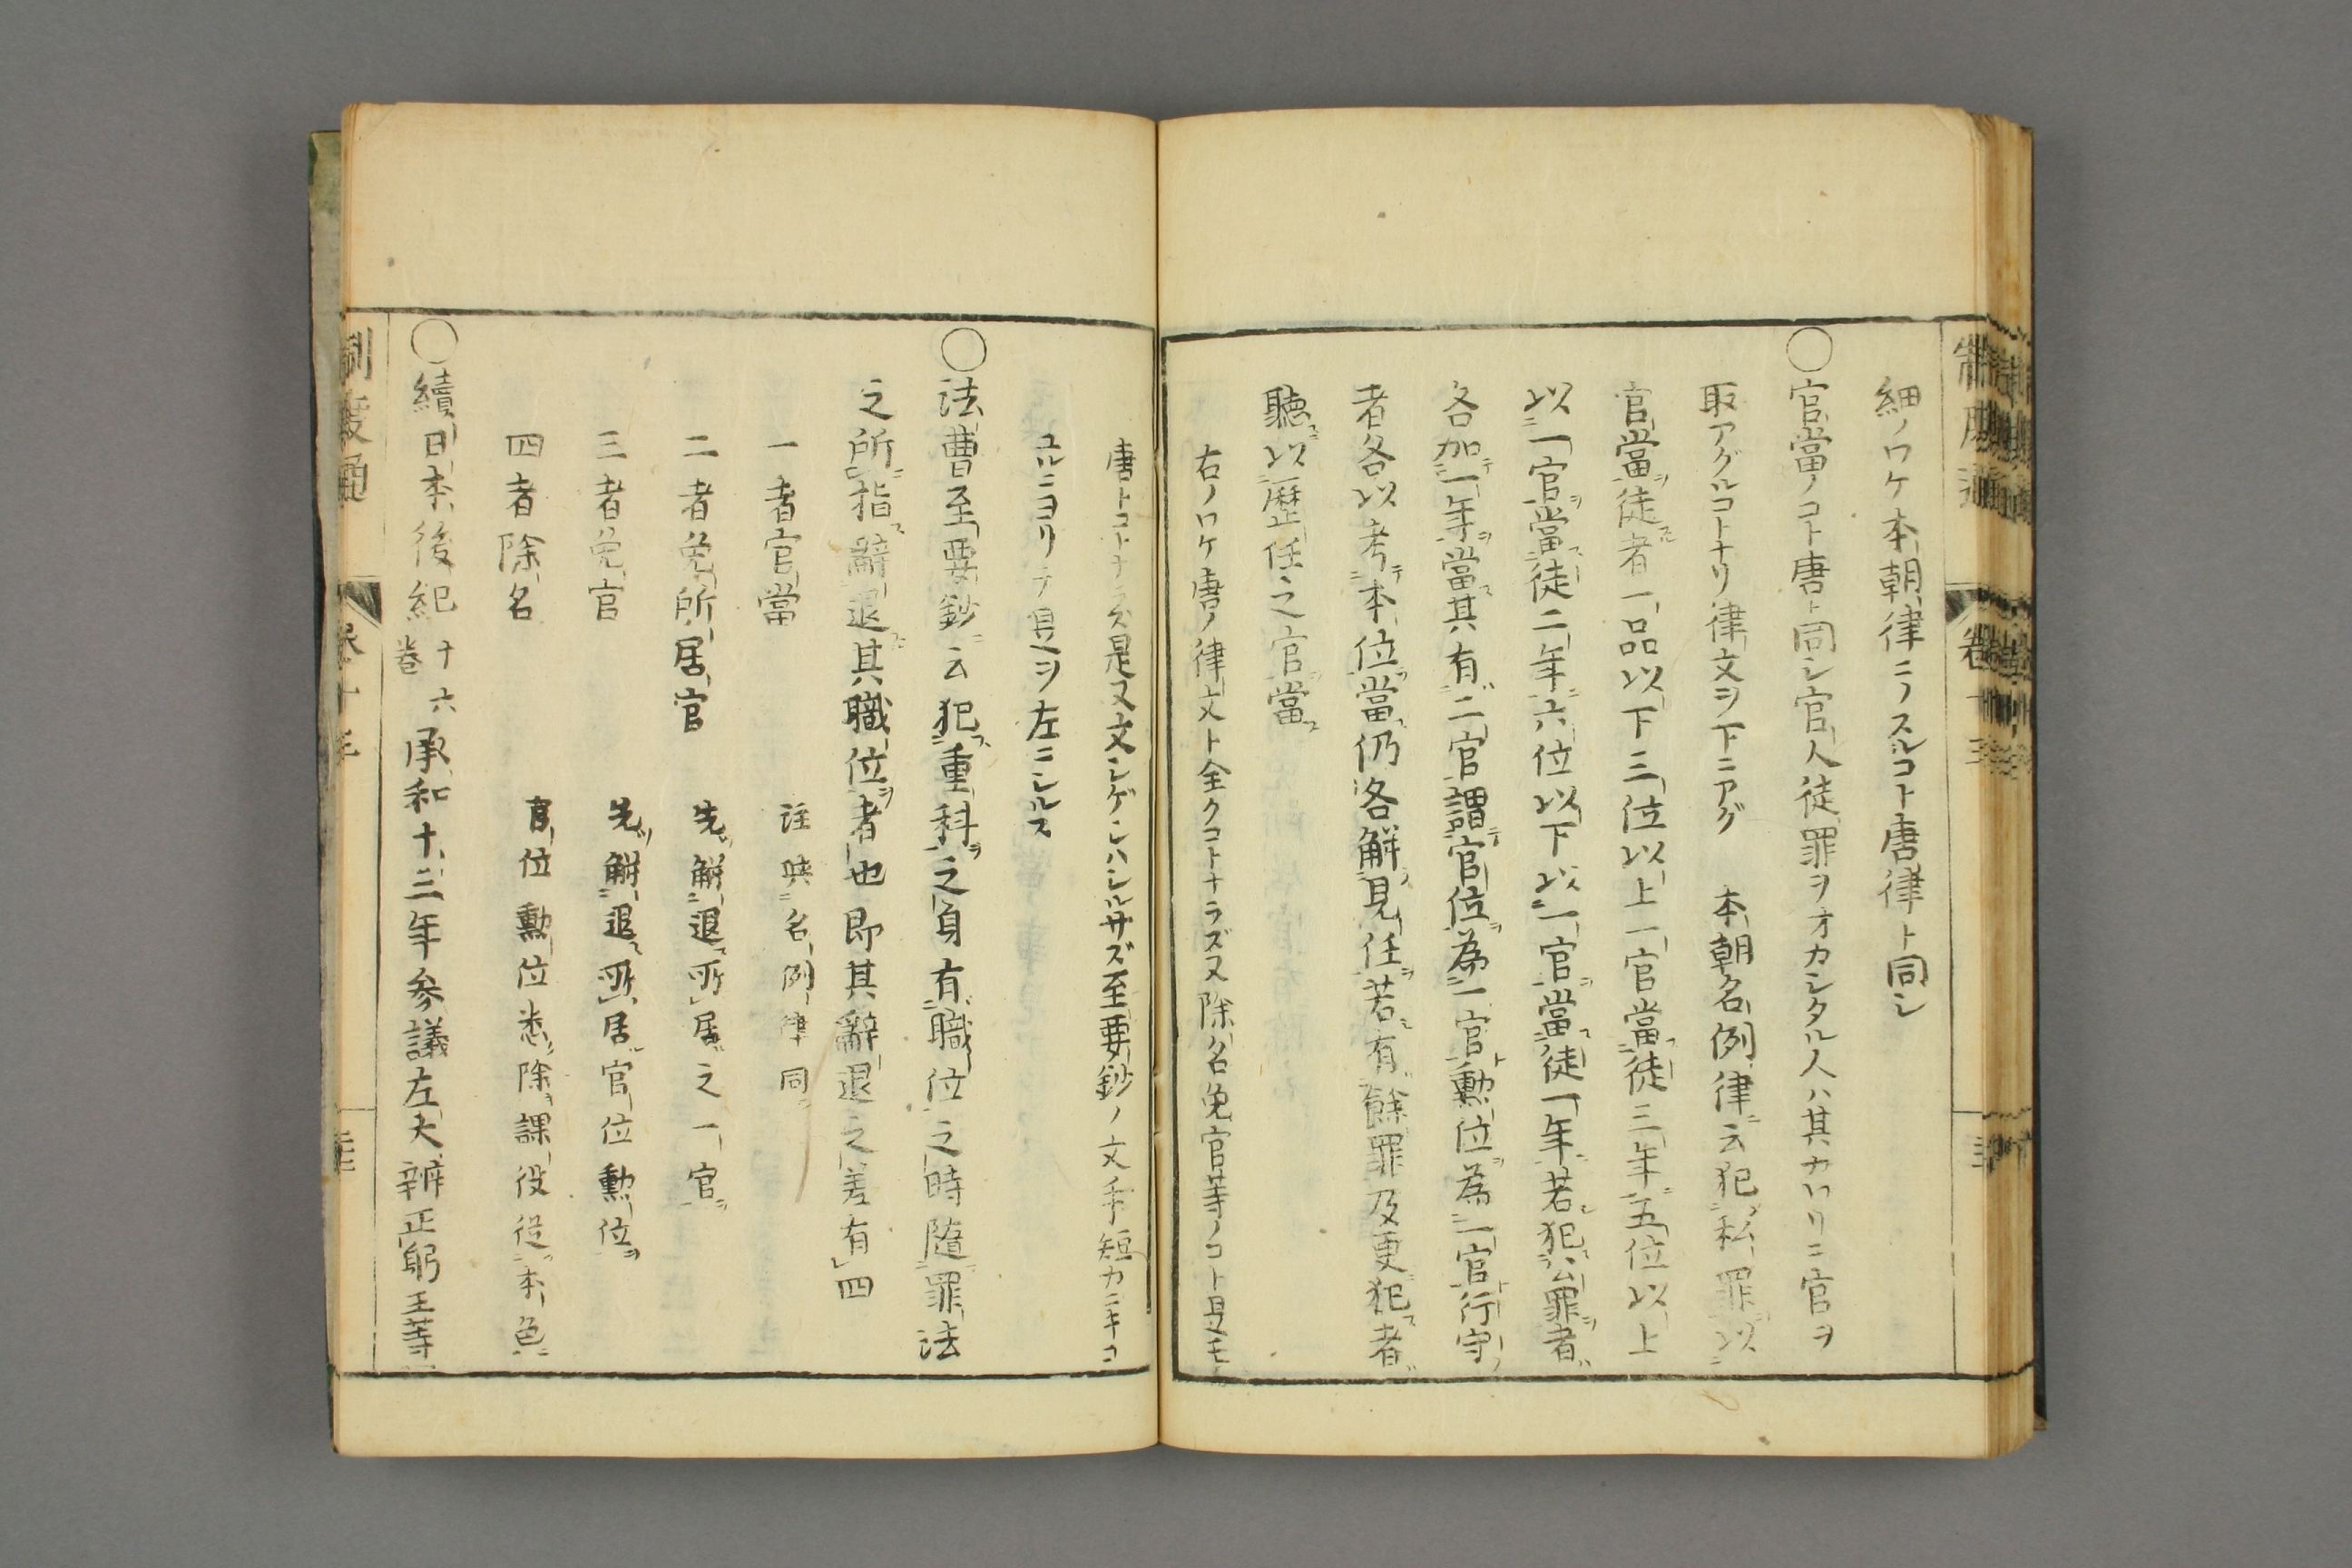 細ノワケ本朝律ニノスルコト唐律ト同シ
○官當ノコト唐ト同シ官人徒罪ヲオカシタル人ハ其カハリニ官ヲ
取アグルコトナリ律文ヲ下ニアグ 本朝名例律ニ云犯私罪以
官當徒者一品以下三位以上一官當徒三年五位以上
以一官當徒二年六位以下以一官當徒一年若犯公罪者
各加一年當其有二官謂官位為一官勲位為一官行守
者各以考本位當仍各解見任若有餘罪及更犯者
聴以歴任之官當
右ノワケ唐ノ律文ト全クコトナラズ又除名免官等ノコト是モ
唐トコトナラズ是又文シゲシハシルサズ至要鈔ノ文手短カニキコ
ユルニヨリテ具ヲ左ニシルス
○法曹至要鈔ニ云犯重科之身有職位之時隨罪法
之所指辭退其職位者也即其辭退之差有四
一者官當 註 名例律同
二者免所居官 先解退所居之一官
三者免官 先解退所居官位勲位
四者除名 官位勲位悉除課役從本色
○續日本後紀十六卷承和十三年参議左大辨正躬王等
制度通 卷十三